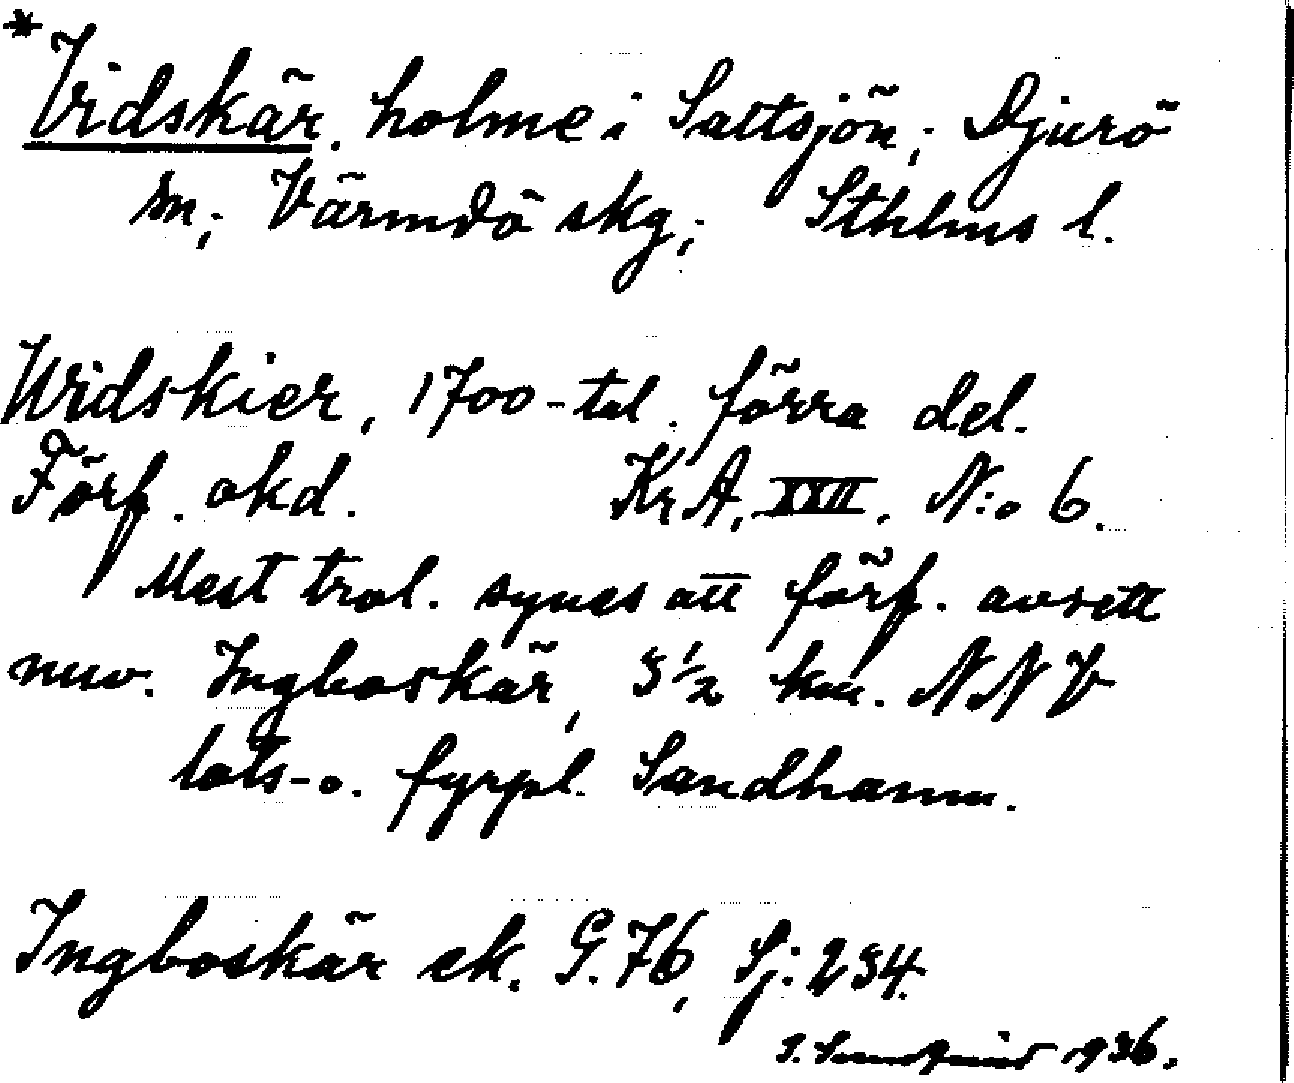 * Vidskär. holme i Saltsjön; Djurö
sn; Värmdö skg; Sthlms l.
Widskier, 1700-tal. förra del.
Förf. okd. KrA, XVII. N:o 6.
Mest trol. synes att förf. avsett
nuv. Ingboskär, 3 1/2 km. NNV
lots- o. fyrpl. Sandhamn.
Ingboskär ek. G. 76, Sj: 234.
1936.